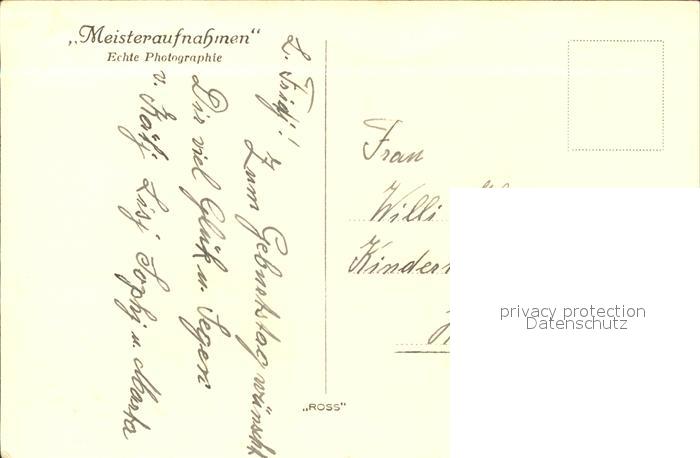 „Meisteraufnahmen“
Echte Photographie
L. Fridj!
Zum Geburtstag wünscht
Dir viel Glük u. Segen
v. Kätj Lisj Sophj u. Marta
Frau
Willi
„ROSS“
privacy protection
Datenschutz